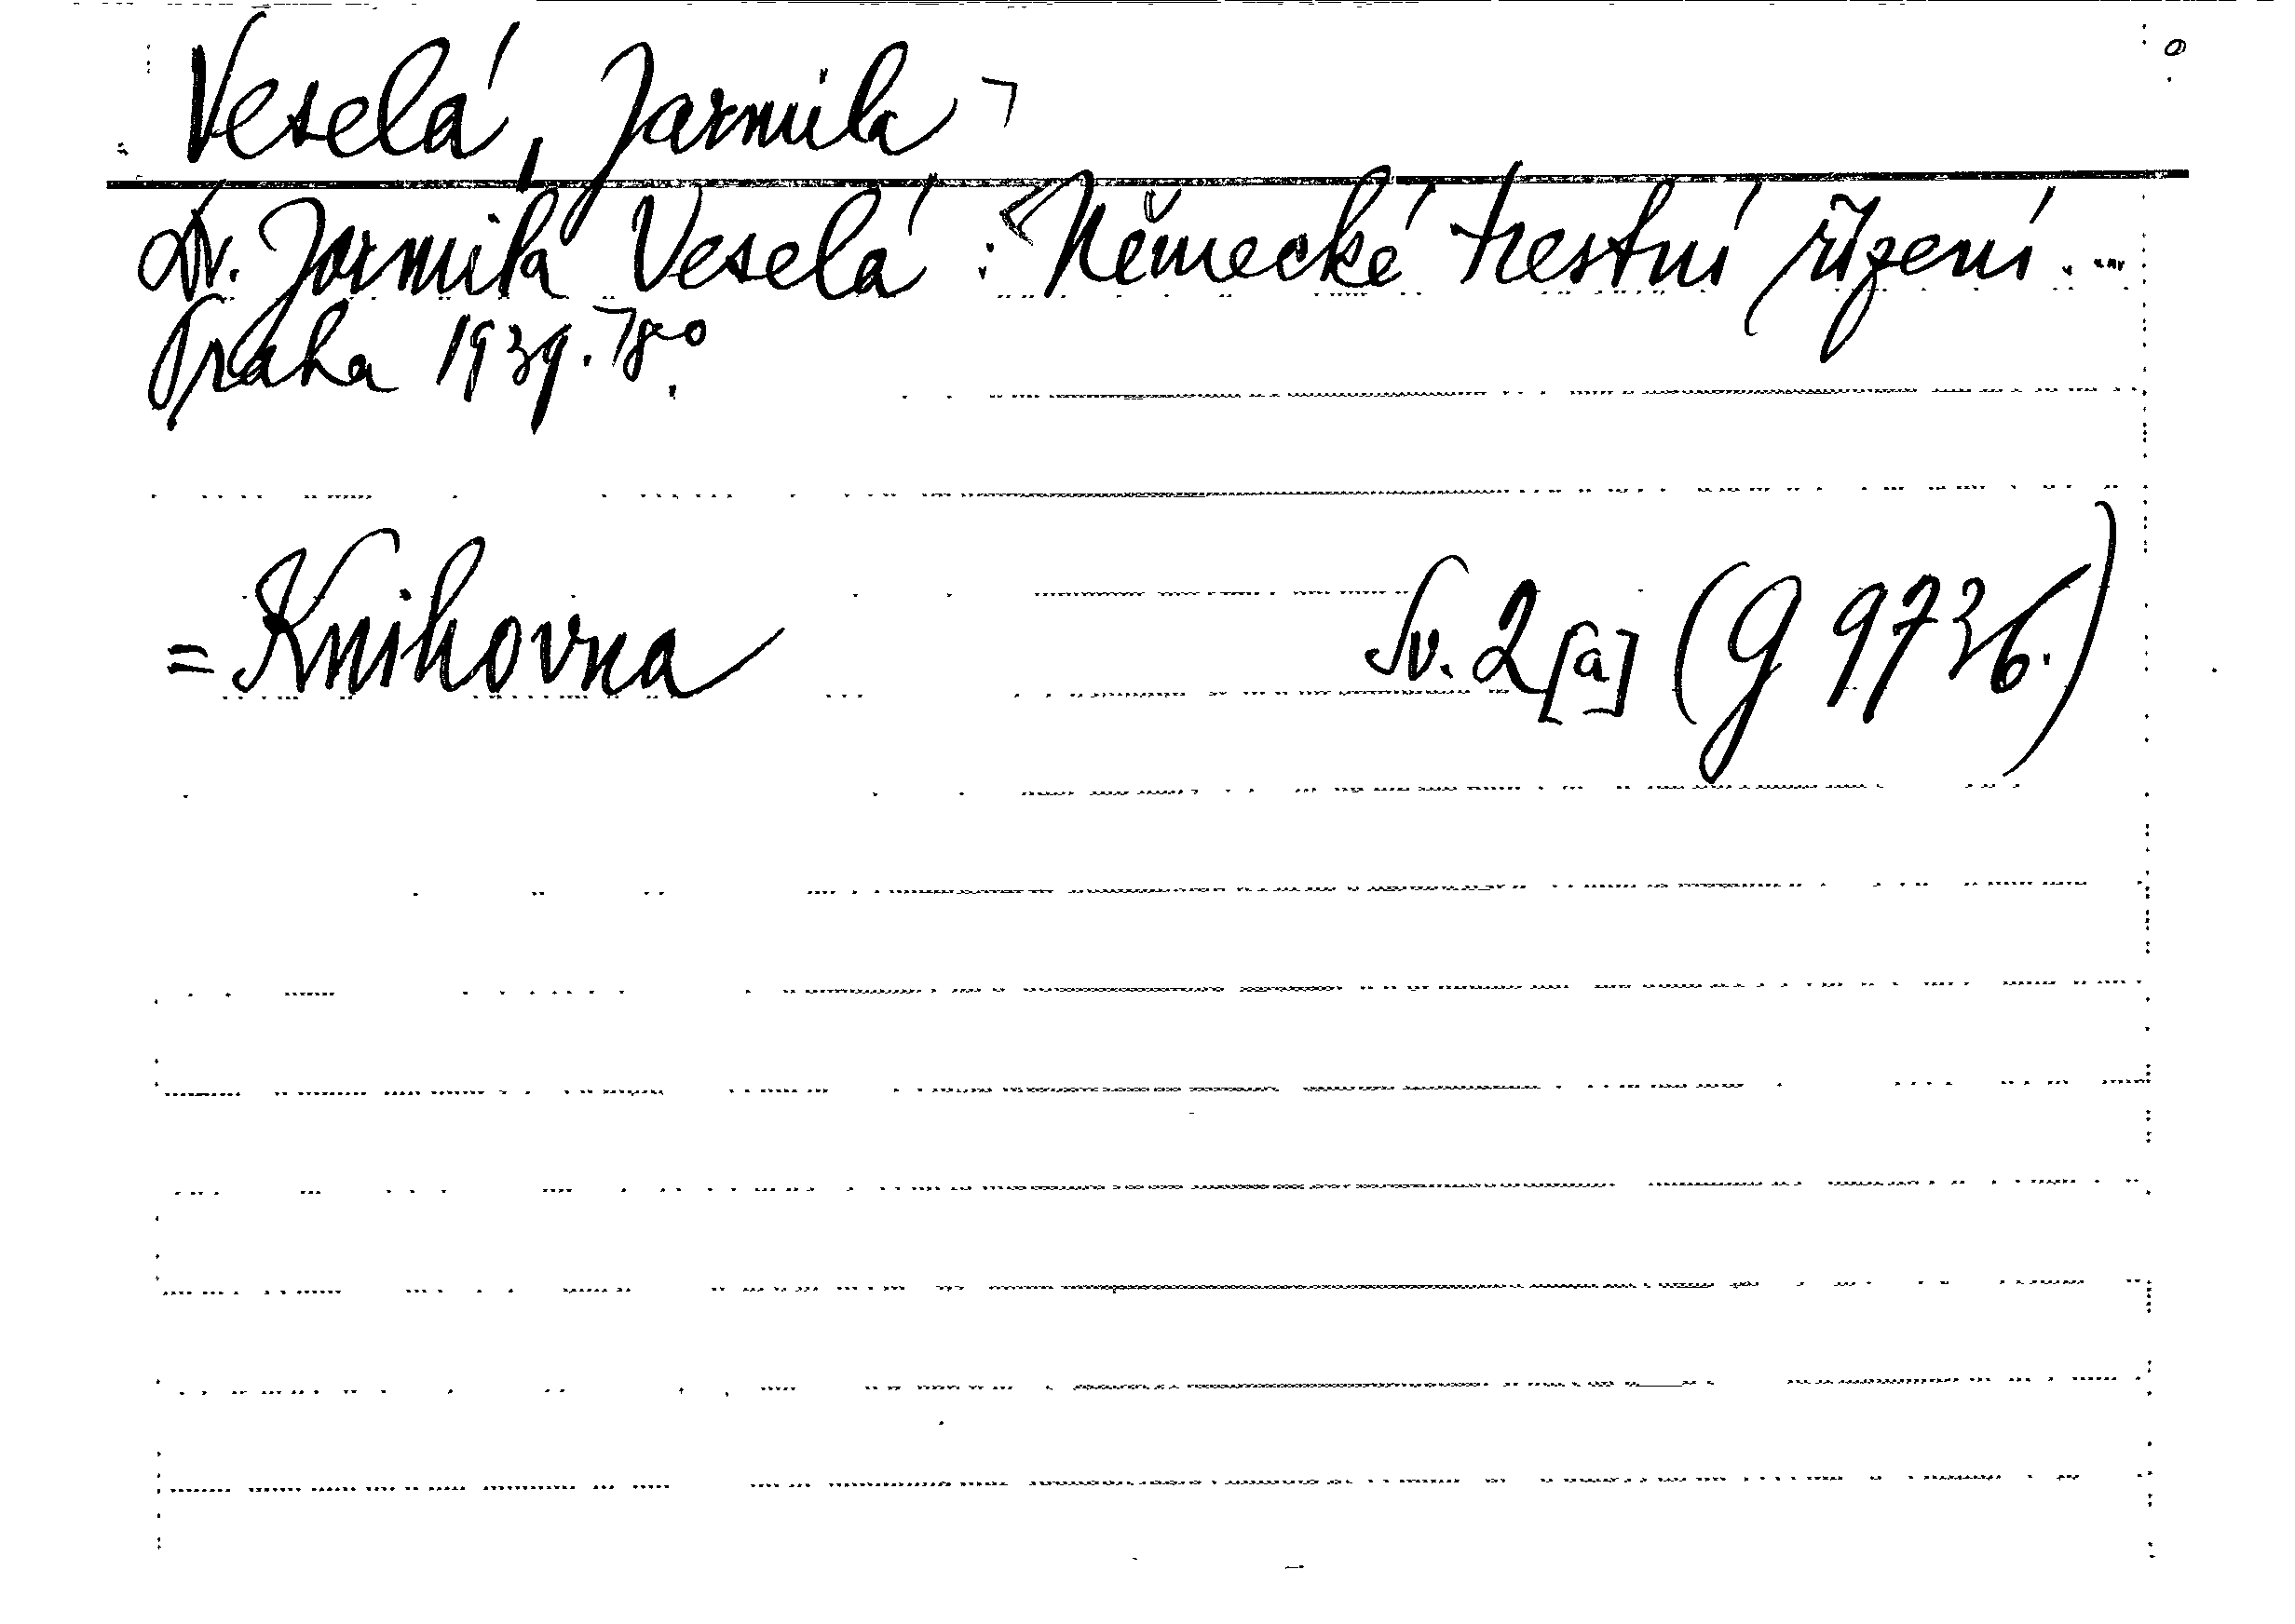 Veselá, Jarmila ¬
Dr. Jarmila Veselá : <Německé trestní řízení. ...
Praha 1939. ¬8°.
= Knihovna Sv. 2[a] (G 9736.)